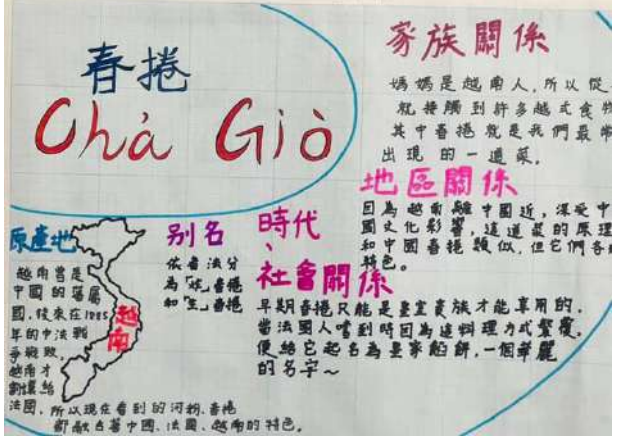 春捲
Chả Giò
家族關係
媽媽是越南人,所以從
就接觸到許多越式食物
其中春捲就是我們最常
出現的一道菜.
地區關係
因為越南離中國近,深受中
國文化影響,這道菜的原理
和中國春捲類似,但它們各
特色。
原產地
越南曾是
中國的藩屬
國,後來在1885
年的中法戰
爭戰敗,
越南才
割讓給
法國,所以現在看到的河粉、春捲
都融合著中國、法國、越南的特色。
越南
別名
依看法分
為「炸」春捲
和「生」春捲
時代、
社會關係
早期春捲只能是皇室貴族才能享用的.
當法國人嚐到時因為這料理方式繁複.
便給它起名為皇家餡餅,一個華麗
的名字~